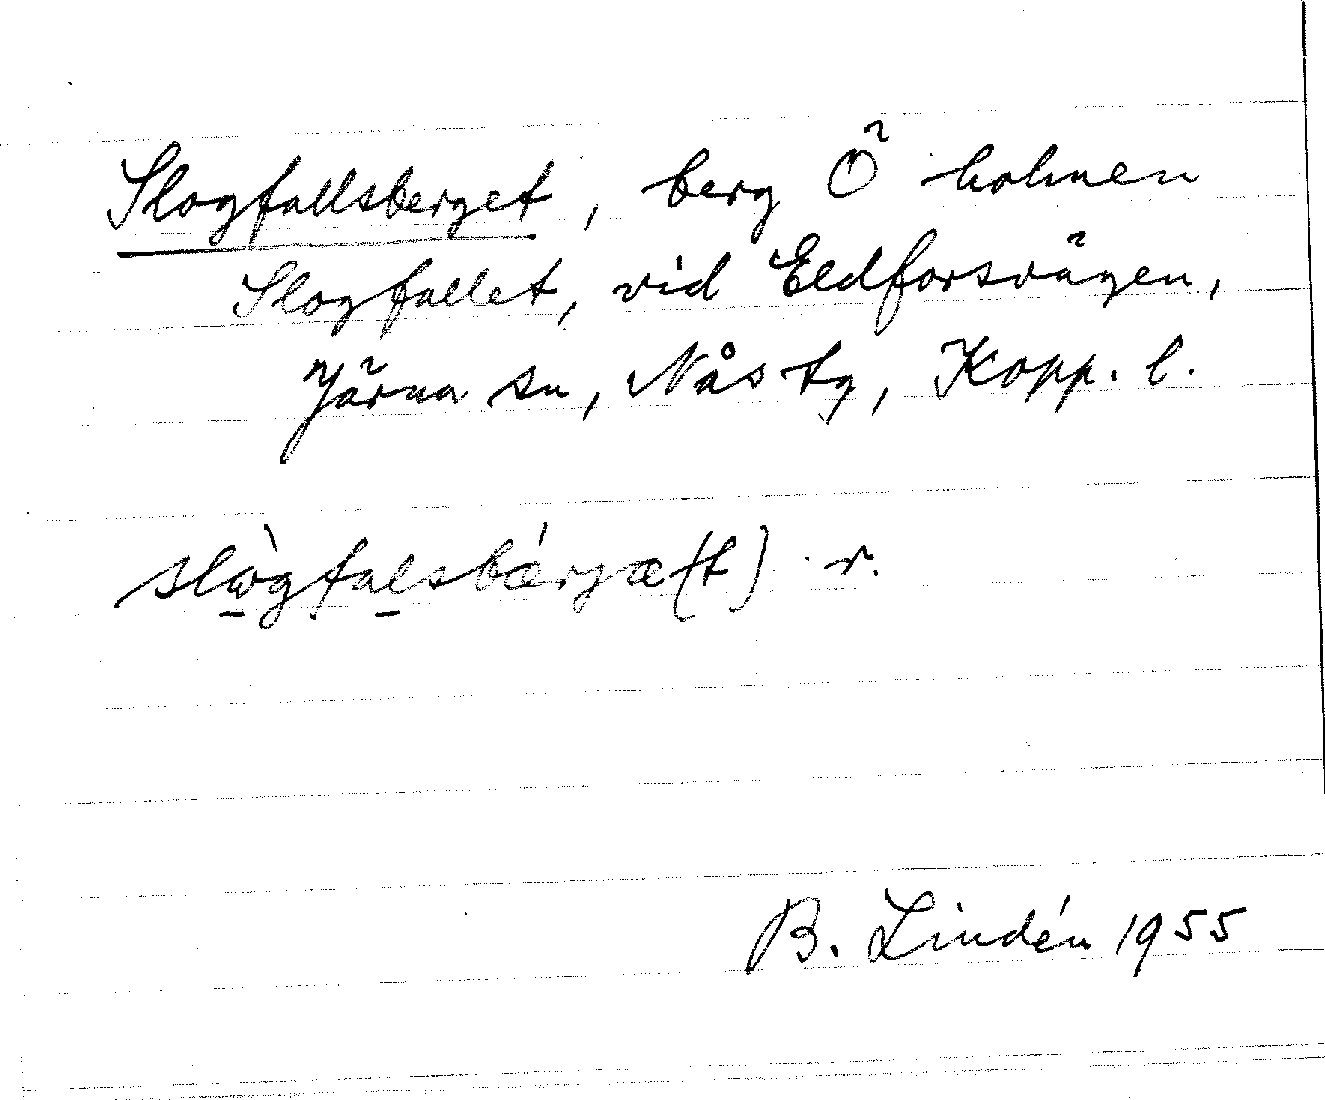 Slogfallsberget, berg Ö holmen
Slogfallet, vid Eldforsvägen,
Järna sn, Nås tg, Kopp. l.
slògfalsbærjæ(t) r.
B. Lindén 1955